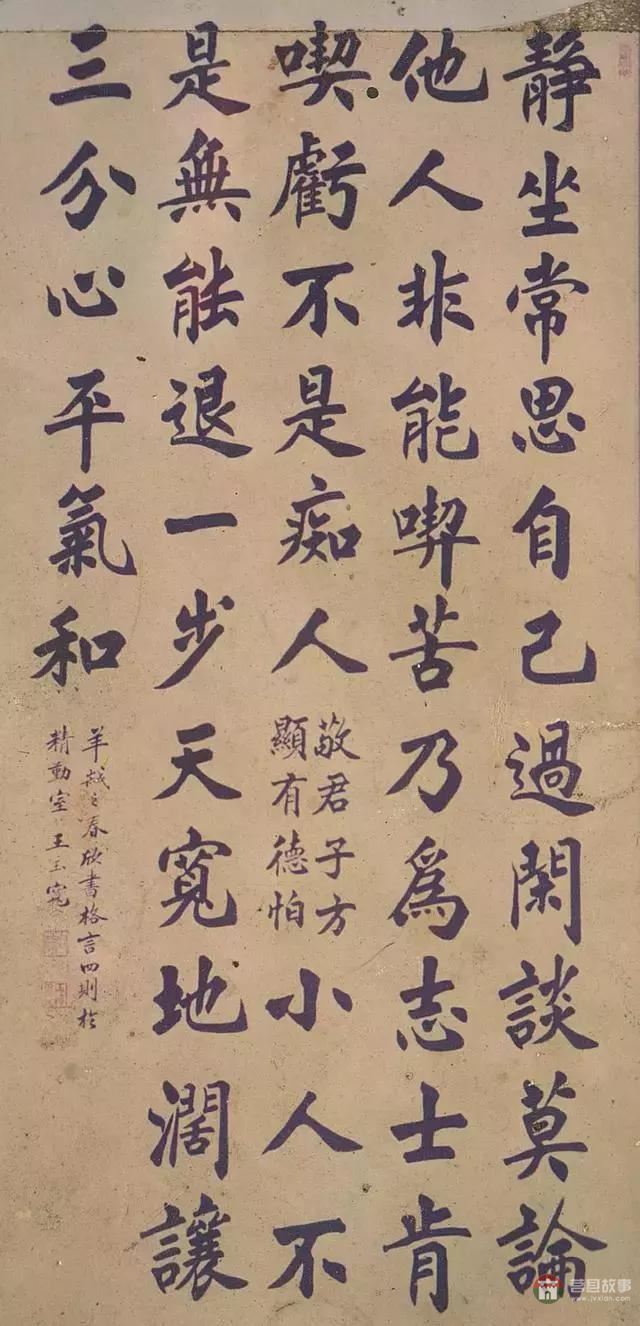 静坐常思自己過閑談莫論
他人非能喫苦乃爲志士肯
喫虧不是痴人
敬君子方
顯有德怕
小人不
是無能退一步天寬地濶讓
三分心平氣和
之春欣書格言四則於
精勤室王玉寬
莒县故事
www.jvxian.com